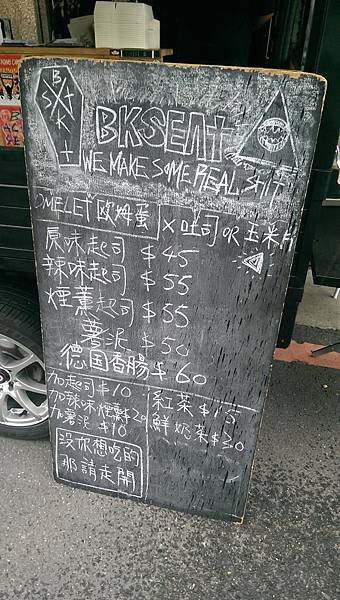 BKSEAt
WE MAKE SOME REAL SHIT
OMELET 欧姆蛋 X 吐司 OR 玉米片
原味起司 $45
辣味起司 $55
煙薰起司 $55
薯泥 $50
德国香腸 $60
加起司 $10
加辣味煙薰 $20
加薯泥 $10
紅茶 $15
鮮奶茶 $30
沒你想吃的
那請走開